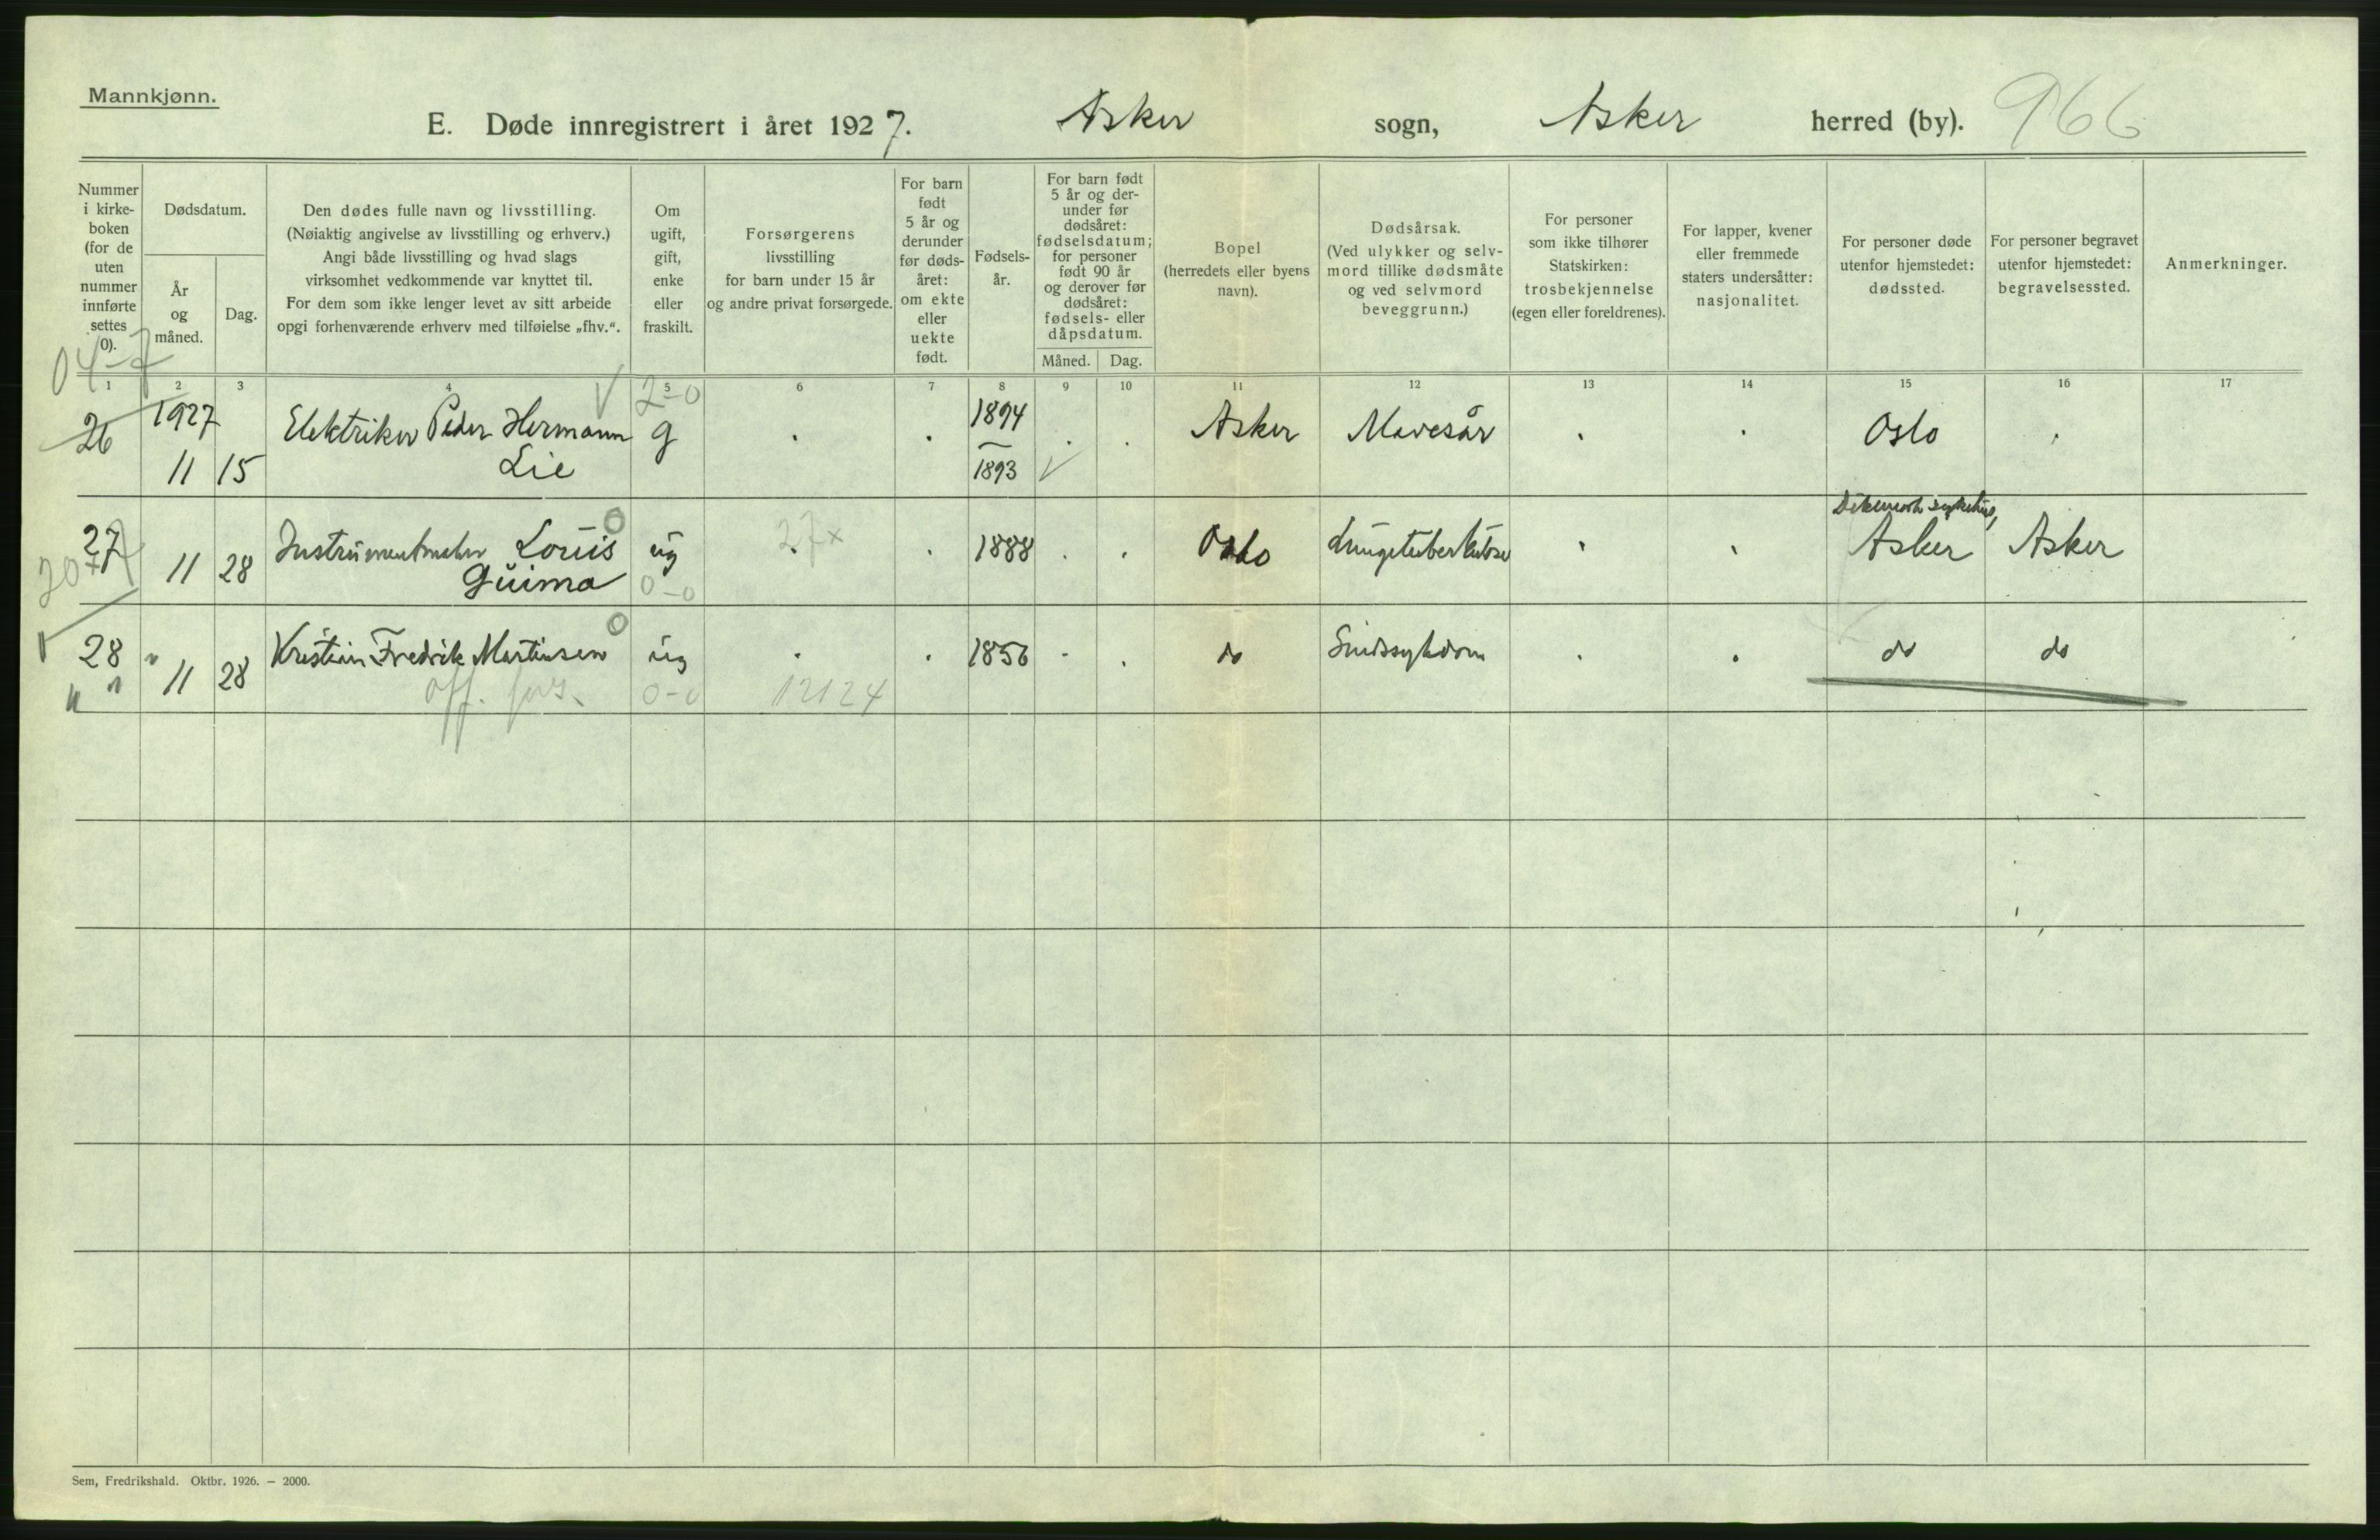 Mannkjønn.
E. Døde innregistrert i året 1927. Asker sogn, Asker herred (by). 966
Nummer i kirke- boken (for de uten nummer innførte settes 0).
Dødsdatum.
År og måned.
Dag.
Den dødes fulle navn og livsstilling.
(Nøiaktig angivelse av livsstilling og erhverv.)
Angi både livsstilling og hvad slags
virksomhet vedkommende var knyttet til.
For dem som ikke lenger levet av sitt arbeide
opgi forhenværende erhverv med tilføielse „fhv.“.
Om ugift, gift, enke eller fraskilt.
Forsørgerens
livsstilling
for barn under 15 år
og andre privat forsørgede.
For barn født 5 år og derunder før døds- året: om ekte eller uekte født.
Fødsels- år.
For barn født 5 år og der- under før dødsåret: fødselsdatum; for personer født 90 år og derover før dødsåret: fødsels- eller dåpsdatum.
Måned. Dag.
Bopel
(herredets eller byens
navn).
Dødsårsak.
(Ved ulykker og selv-
mord tillike dødsmåte
og ved selvmord
beveggrunn.)
For personer
som ikke tilhører
Statskirken:
trosbekjennelse
(egen eller foreldrenes).
For lapper, kvener
eller fremmede
staters undersåtter:
nasjonalitet.
For personer døde
utenfor hjemstedet:
dødssted.
For personer begravet
utenfor hjemstedet:
begravelsessted.
Anmerkninger.
04-7
1 2 3 4 5 6 7 8 9 10 11 12 13 14 15 16 17
2-0
26 1927 Elektriker Peder Hermann g . . 1894 . . Asker Mavesår . . Oslo .
11 15 Lie 1893
Dikemark sykehus,
27 11 28 Instrumentmaker Louis ug 27x . 1888 . . Oslo Lungetuberkulose . . Asker Asker
Guima 0-0
28 " 11 28 Kristian Fredrik Martinsen ug . . 1856 . . do Sindssykdom . . do do
off. fors. 0-0 12124
Sem, Fredrikshald. Oktbr. 1926. — 2000.